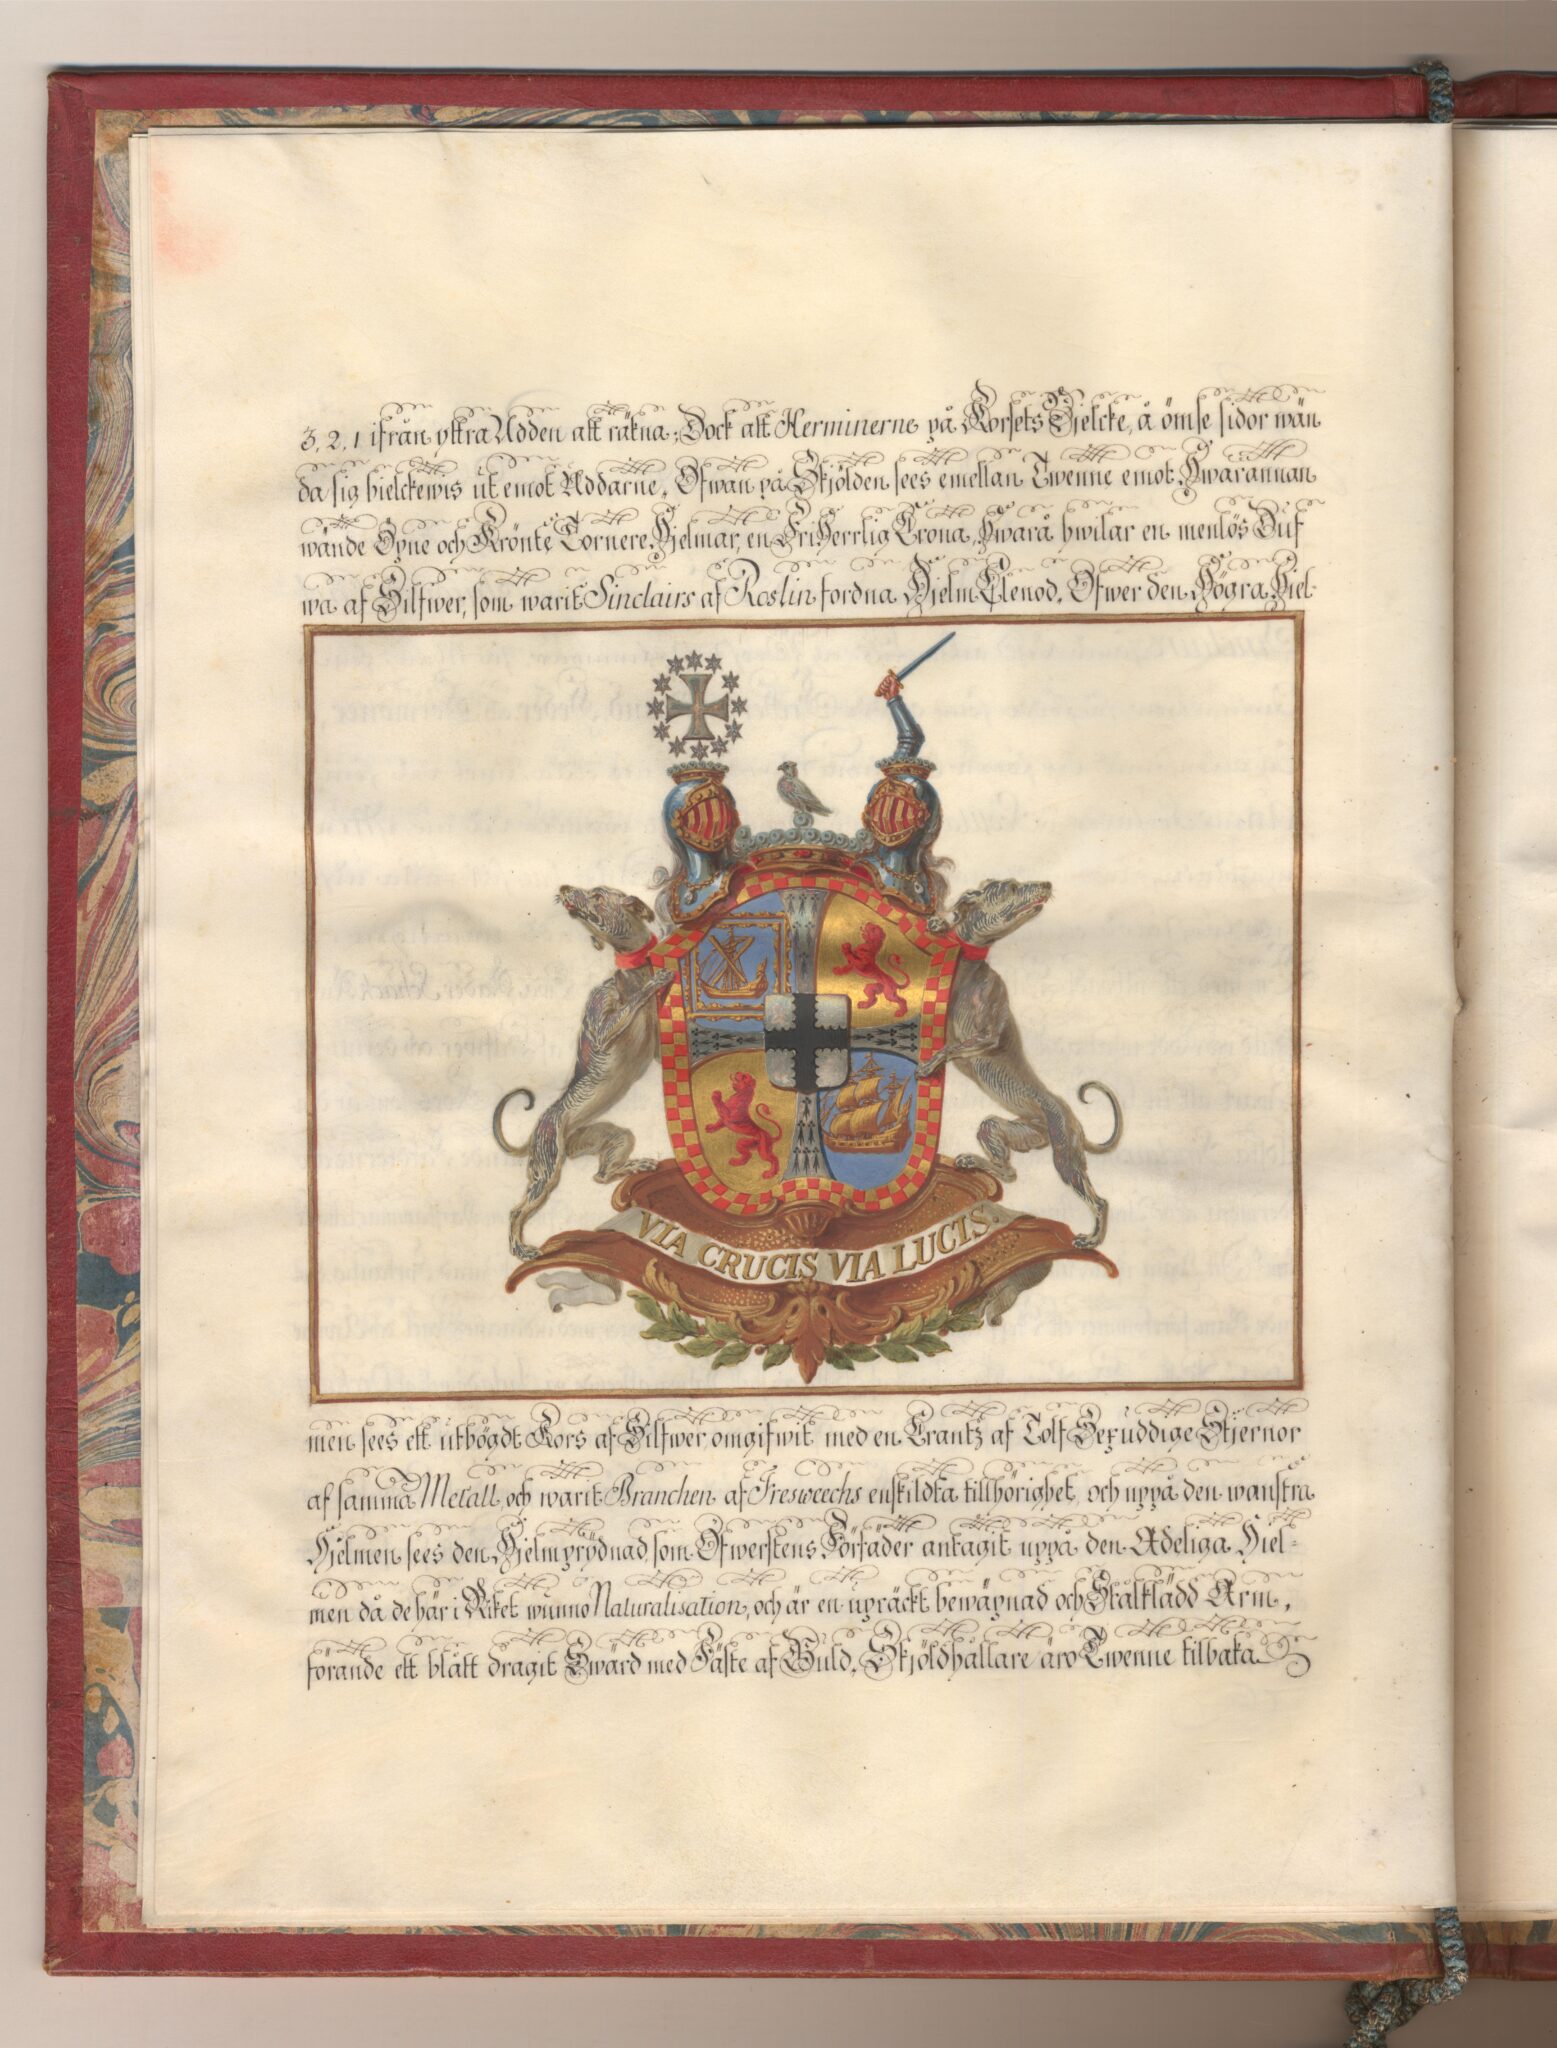 3. 2. 1 ifrån yttra Udden att räkna; Dock att Herminerne på Korsets Stjelcke, å ömse sidor wän
da sig hielckewis ut emot Uddarne. Ofwan på Skjölden sees emellan Twenne emot Hwarannan
wände Öpne och Krönte Tornere Hjelmar, en FriHerrlig Crona, Hwarå hwilar en menlös Duf
wa af Silfwer, som warit Sinclairs af Roslin fordna Hjelm Clenod. Öfwer den Högra Hjel-
VIA CRUCIS VIA LUCIS.
men sees ett utbögdt Kors af Silfwer, omgifwit med en Crantz af Tolf Sexuddige Stjernor
af samma Metall, och warit Branchen af Fresweechs enskildta tillhörighet, och uppå den wänstra
Hjelmen sees den Hjelmprydnad, som Öfwerstens Förfäder antagit uppå den Adeliga Hiel-
men då de här i Riket wunno Naturalisation, och är en upräckt bewäpnad och Stålklädd Arm,
förande ett blått dragit Swärd med Fäste af Guld. Skjöldhållare äro Twenne tilbaka